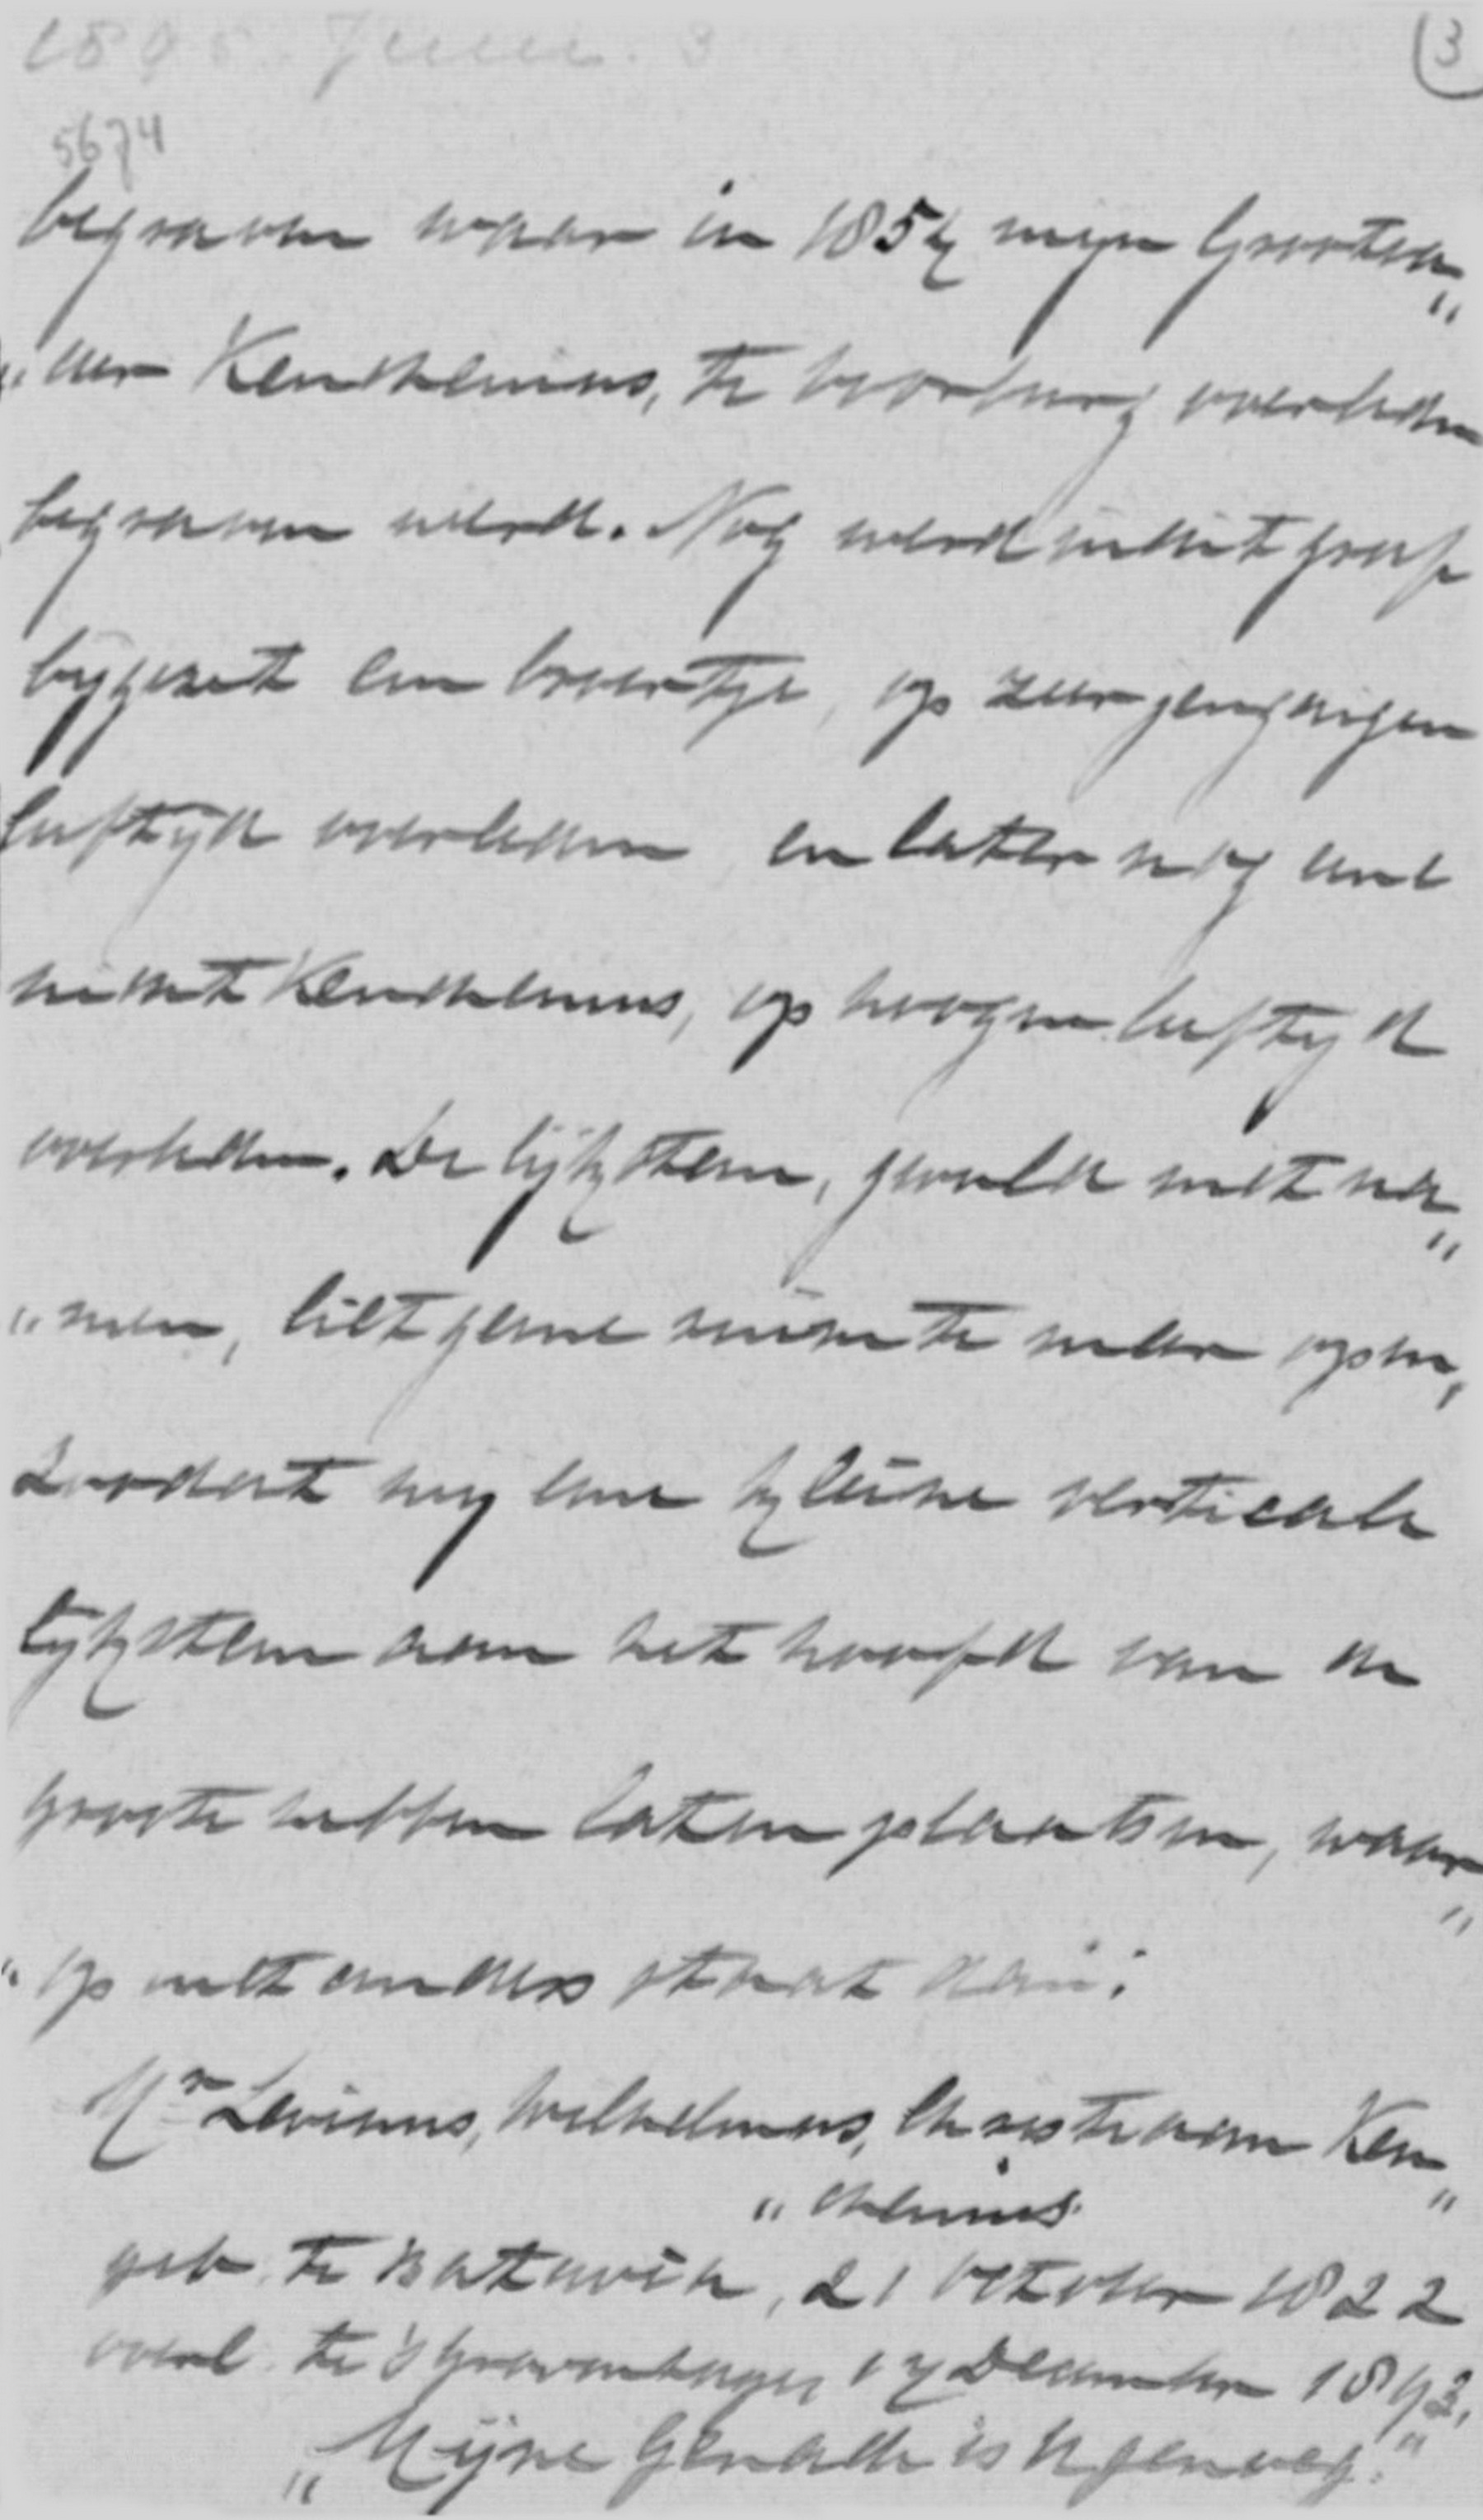 1895. Juni. 3
3
5674
begraven waar in 1854 mijn Grootva„
„der Keuchenius, te Voorburg overleden
begraven werd. Nog werd in dit graf
bijgezet een broertje, op zeer jeugdigen
leeftijd overleden en later nog eene
nicht Keuchenius, op hoogen leeftijd
overleden. De lijksteen, gevuld met na„
„men, liet geene ruimte meer open,
zoodat wij eene kleine verticale
lijksteen aan het hoofd van de
groote hebben laten plaatsen, waar„
„op niet anders staat dan:
Mr Levinus, Wilhelmus, Christiaan Keu„
„chenius
geb. te Batavia, 21 October 1822
overl. te 's Gravenhage, 17 December 1893.
„Mijne Genade is U genoeg."